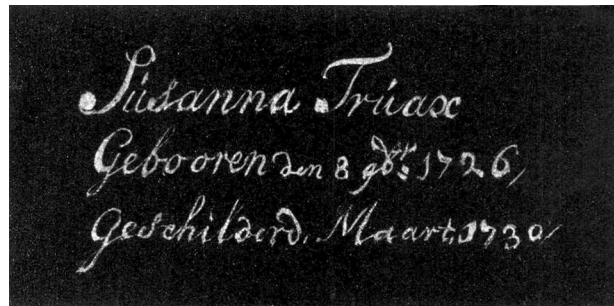 Súsanna Trúax
Gebooren den 8 9br: 1726/
Geschilderd. Maart, 1730/